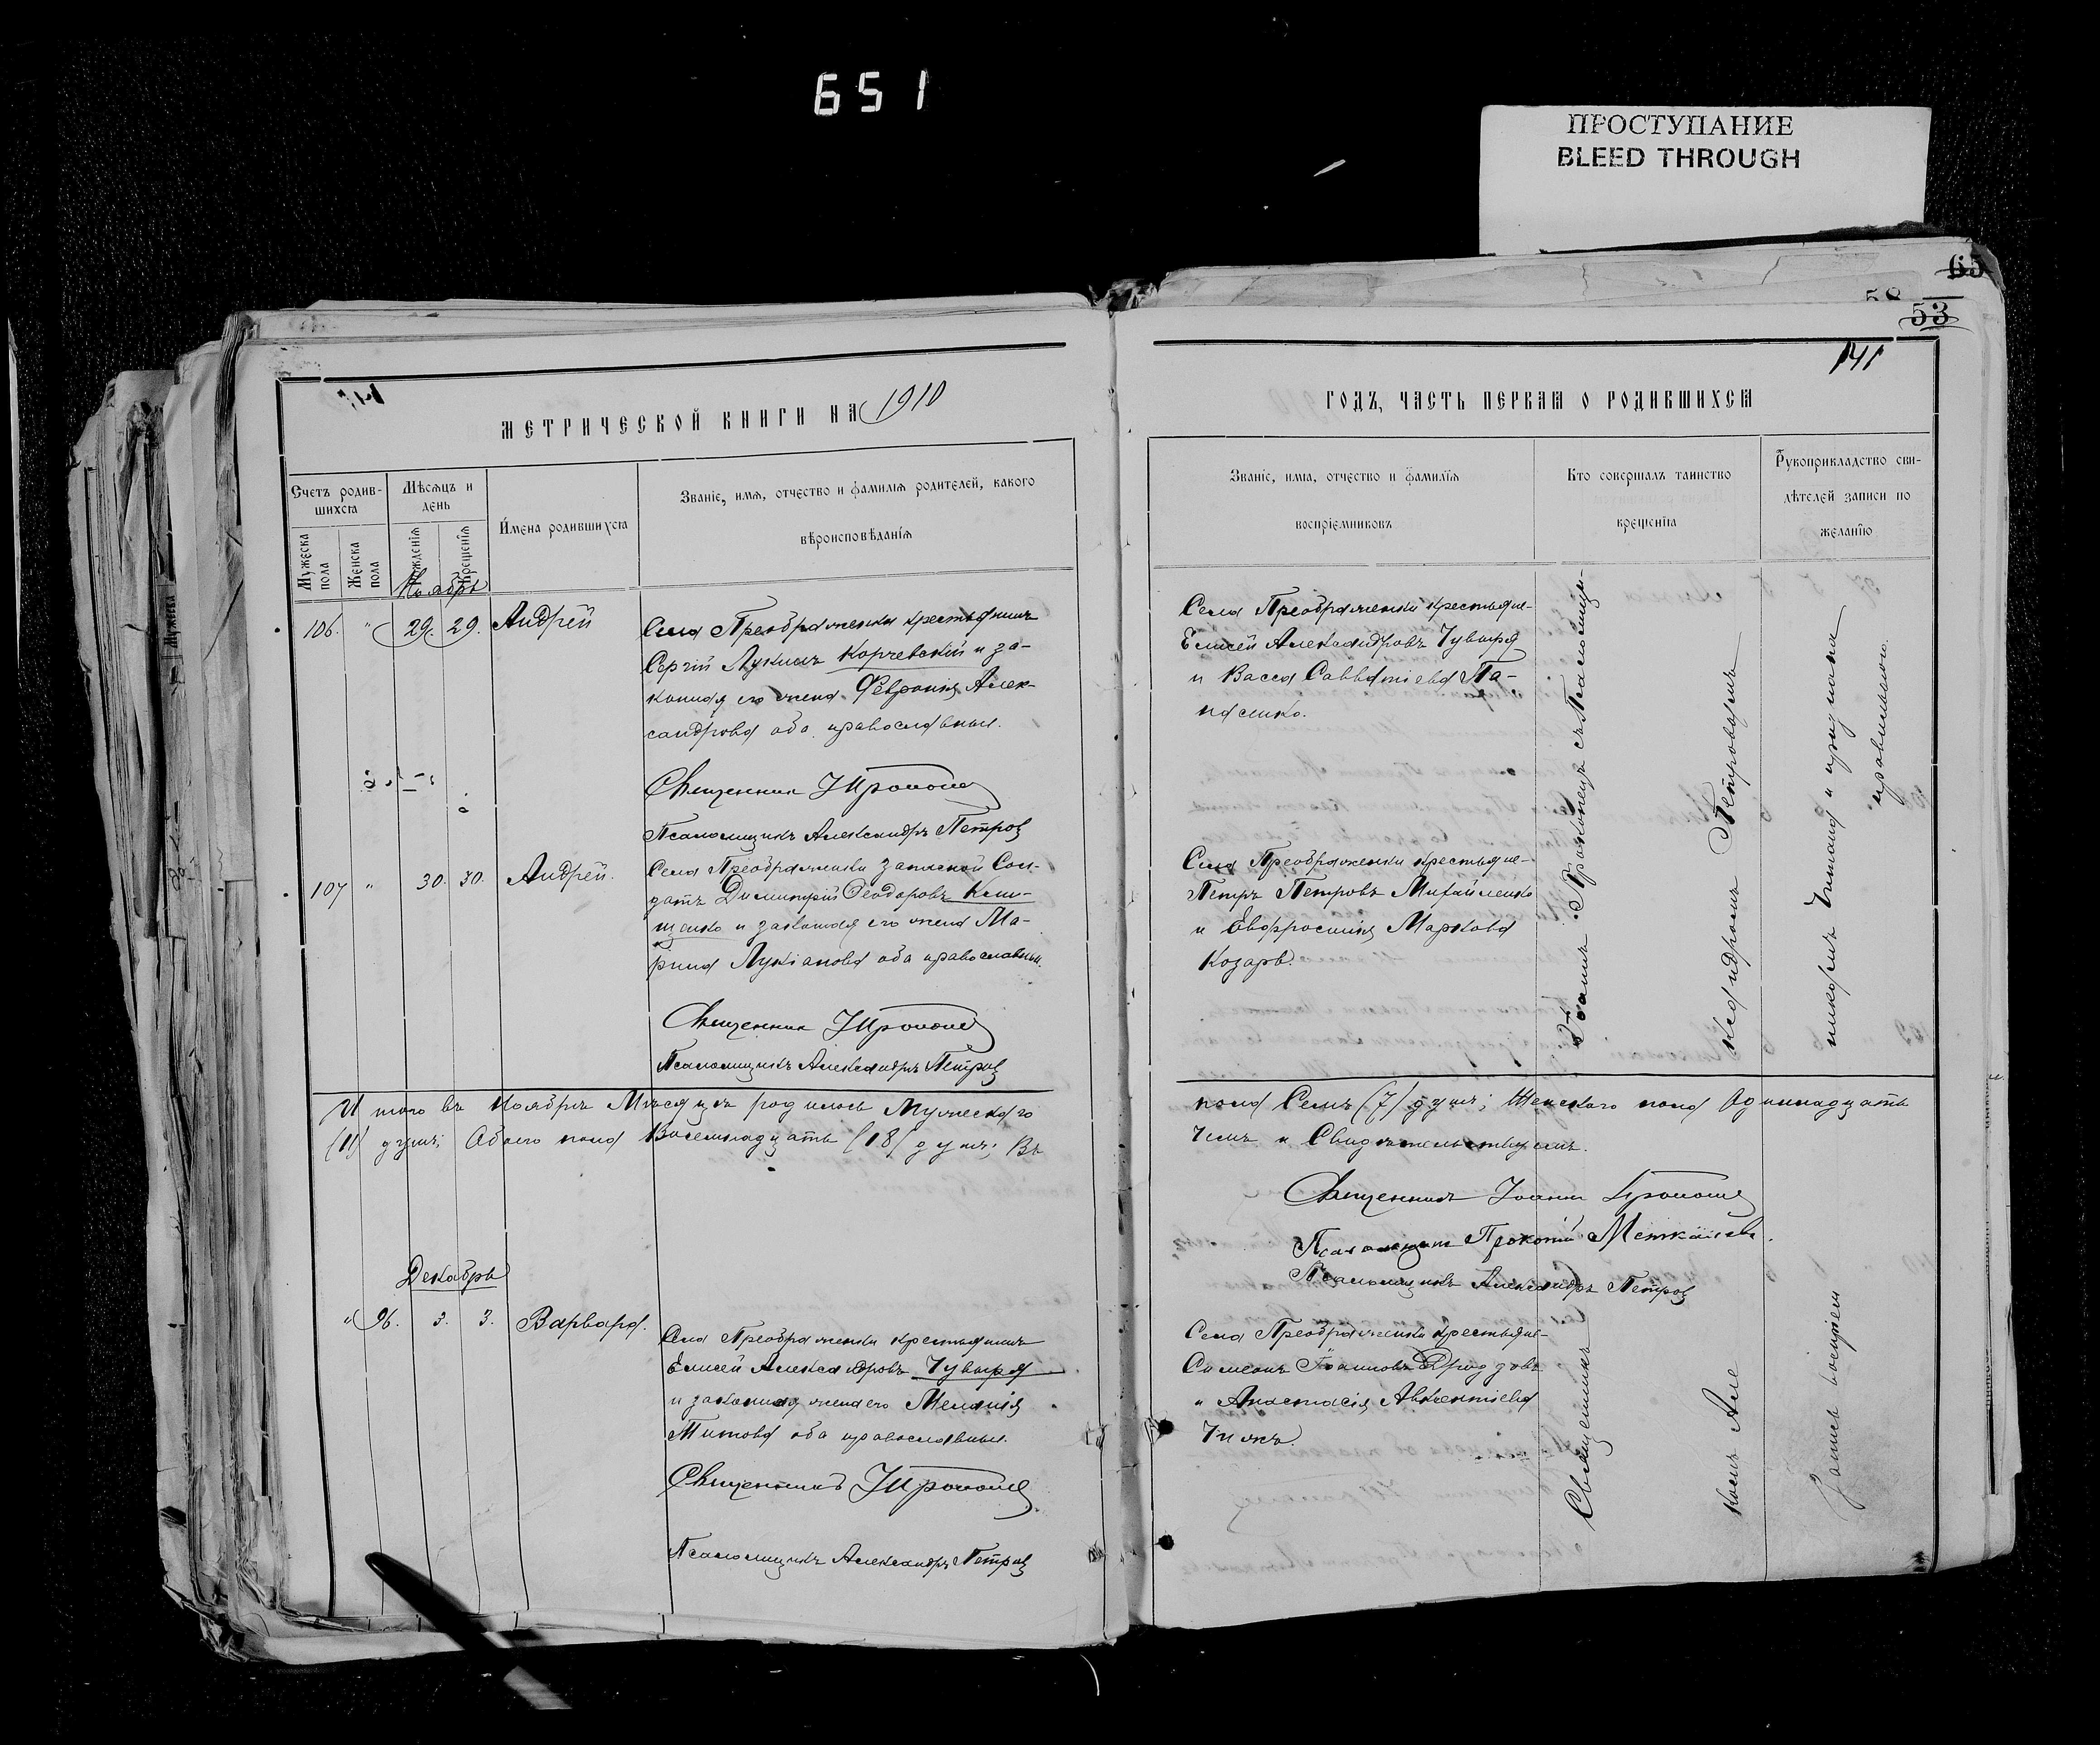 651
ПРОСТУПАНИЕ
BLEED THROUGH
65
58
53
141
МЕТРИЧЕСКОЙ КНИГИ НА 1910
ГОДЪ, ЧАСТЬ ПЕРВАЯ О РОДИВШИХСЯ
Счетъ родив-
шихся
Мужеска пола
Женска пола
Мѣсяцъ и
день
рожденія
крещенія
Имена родившихся
Званіе, имя, отчество и фамилія родителей, какого
вѣроисповѣданія
Званіе, имя, отчество и фамилія
воспріемниковъ
Кто совершалъ таинство
крещенія
Рукоприкладство сви-
дѣтелей записи по
желанію
Ноябрь
106. " 29. 29. Андрей
Села Преображенки крестьянинъ
Сергій Лукинъ Корчевскій и за-
конная его жена Февронія Алек-
сандрова оба православные.
Священникъ
Псаломщикъ Александръ Петровъ
Села Преображенки крестьяне-
Елисей Александровъ Чувыря
и Васса Савватіева Па-
насенко.
107 " 30. 30. Андрей.
Села Преображенки запасной Сол-
датъ Димитрій Ѳеодоровъ Кли-
щенко и законная его жена Ма-
рина Лукіанова оба православные.
Священникъ
Псаломщикъ Александръ Петровъ
Села Преображенки крестьяне-
Петръ Петровъ Михайленко
и Евфросинія Маркова
Козарь.
съ Псаломщи-
комъ
Петровымъ
Итого въ Ноябрѣ Мѣсяцѣ родилось Мужескаго
пола Семь (7) душъ; Женскаго пола Одиннадцать
(11) душъ; Обоего пола Восемнадцать (18) душъ; Въ
чемъ и Свидѣтельствуемъ.
Священникъ Іоаннъ
Псаломщикъ Прокопій
Псаломщикъ Александръ Петровъ
Декабрь
" 96. 3. 3. Варвара.
Села Преображенки крестьянинъ
Елисей Александровъ Чувыря
и законная жена его Меланія
Титова оба православные.
Священникъ
Псаломщикъ Александръ Петровъ
Села Преображенки крестьяне-
Симеонъ Іоанновъ Дроздовъ
и Анастасія Авксентіева
Чижъ.
Священникъ